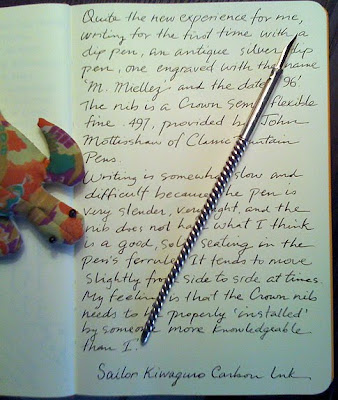 Quite the new experience for me,
writing for the first time with a
dip pen, an antique silver dip
pen, one engraved with the name
'M. Miellez' and the date '96'.
The nib is a Crown semi flexible
fine 497, provided by John
Mottishaw of Classic Fountain
Pens.
Writing is somewhat slow and
difficult because the pen is
very slender, very light, and the
nib does not have what I think
is a good, solid seating in the
pen's ferrule. It tends to move
slightly from side to side at times.
My feeling is that the Crown nib
needs to be properly 'installed'
by someone more knowledgeable
than I.
Sailor Kiwaguro Carbon Ink